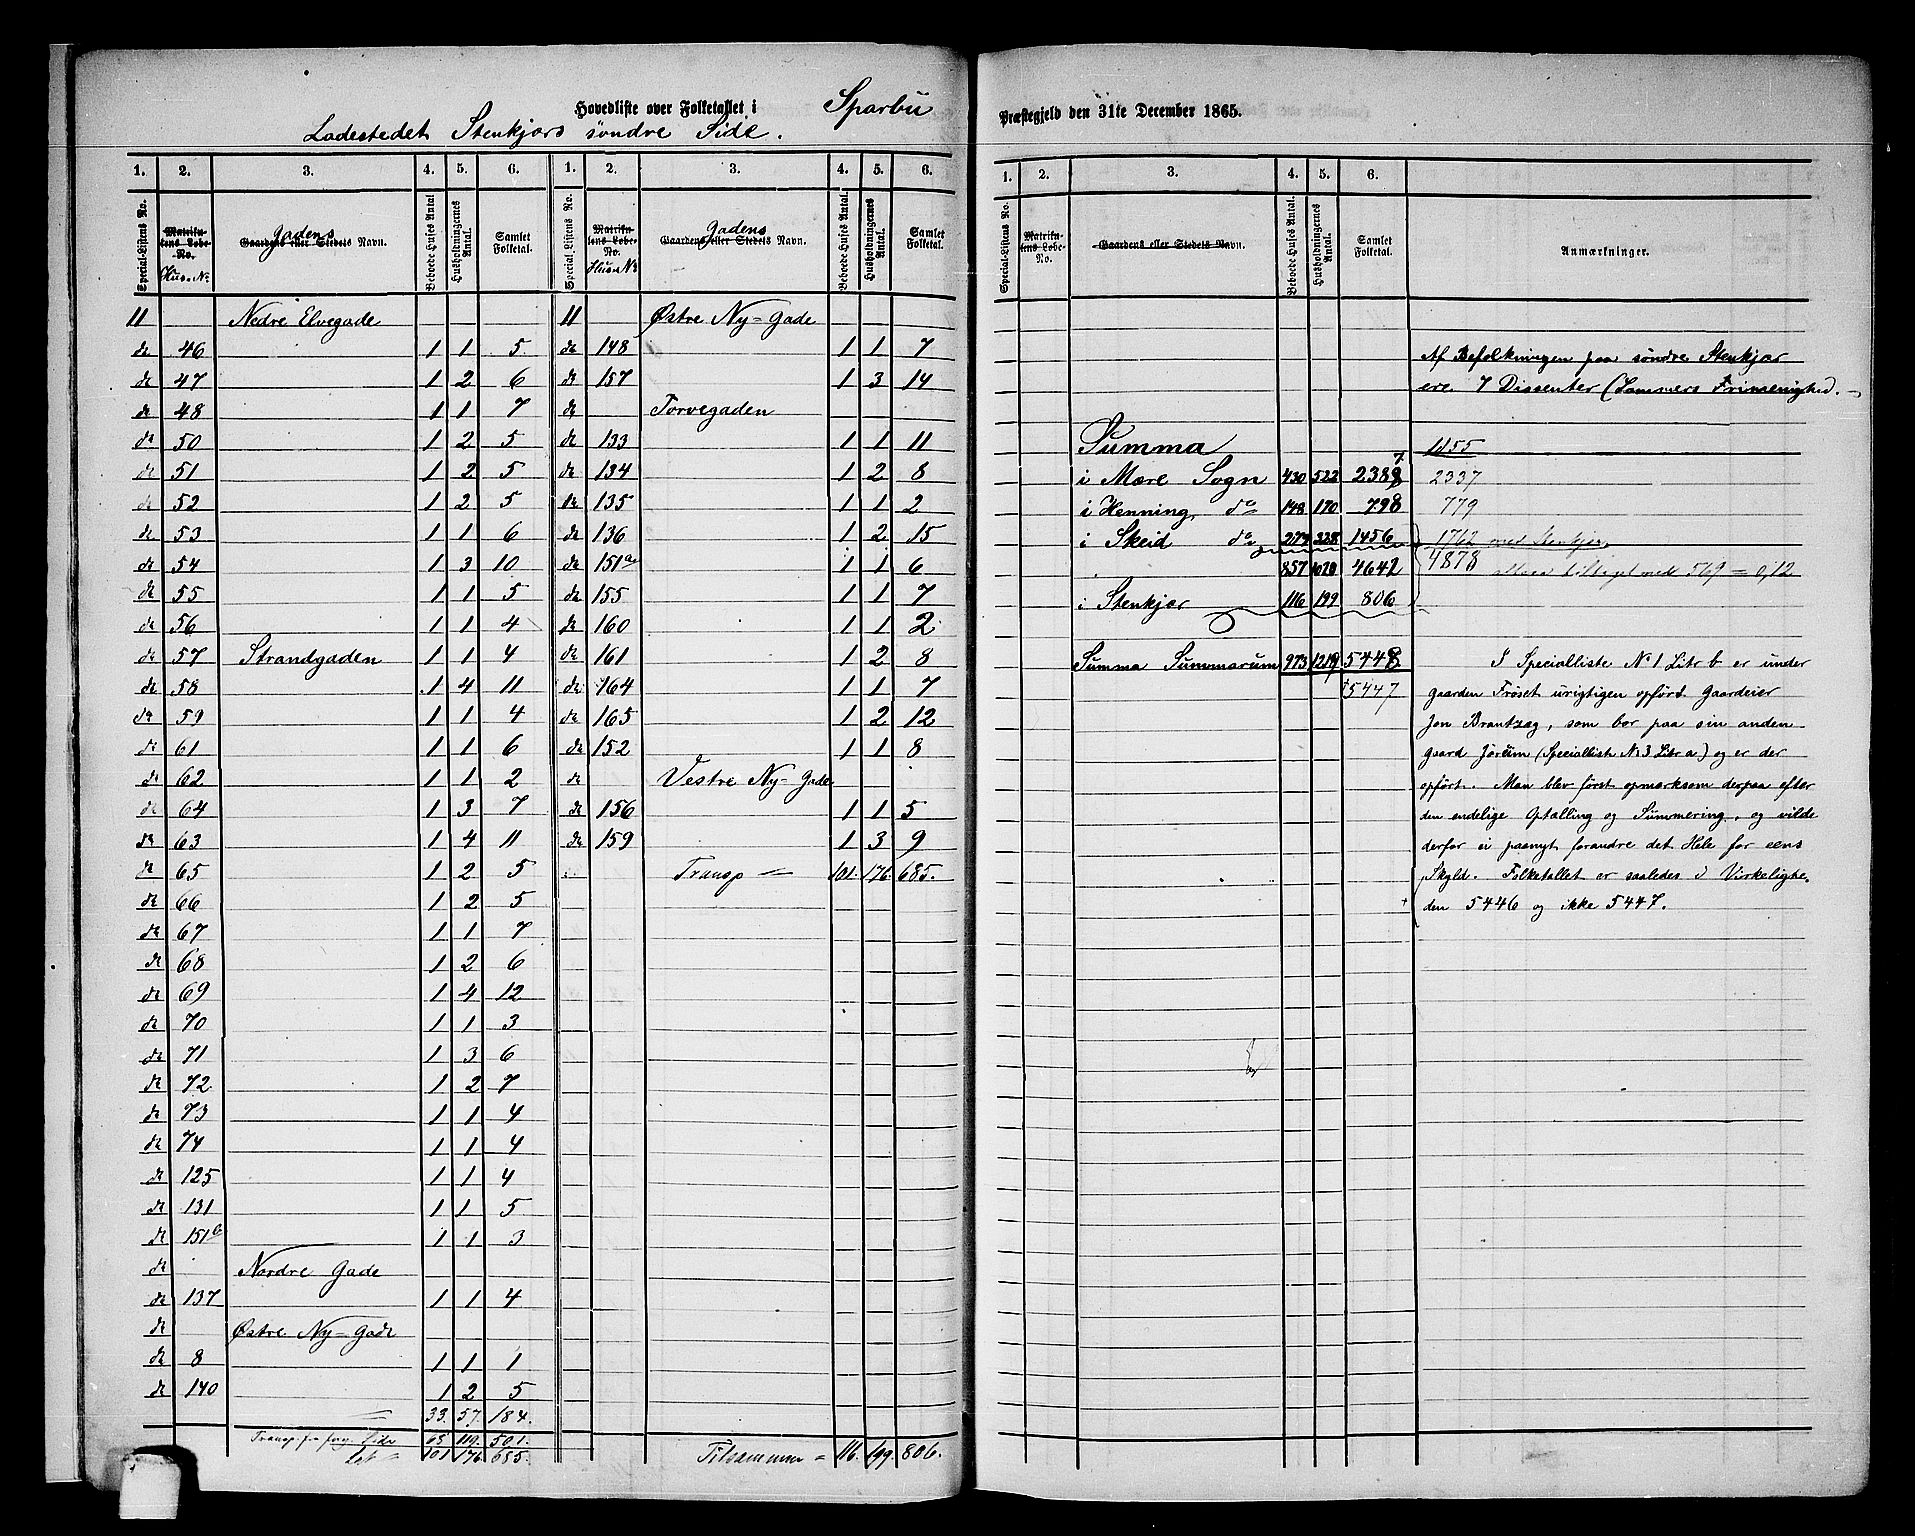 Hovedliste over Folketallet i Sparbu
Ladestedet Stenkjærs søndre Side.
1. 2. 3. 4. 5. 6. 1. 2. 3. 4. 5. 6.
Special-Listens No. Matrikulens Løbe-No. Huus No. Gaardens eller Stedets Navn. Gadens Beboede Huses Antal. Husholdningernes Antal. Samlet Folketal. Special-Listens No. Matrikulens Løbe-No. Huus No. Gaardens eller Stedets Navn. Gadens Beboede Huses Antal. Husholdningernes Antal. Samlet Folketal.
11 Nedre Elvegade 11 Østre Ny-Gade
do 46 1 1 5 do 148 1 1 7
do 47 1 2 6 do 157 1 3 14
do 48 1 1 7 do Torvegaden
do 50 1 2 5 do 133 1 1 11
do 51 1 2 5 do 134 1 2 8
do 52 1 2 5 do 135 1 1 2
do 53 1 1 6 do 136 1 2 15
do 54 1 3 10 do 151a 1 1 6
do 55 1 1 5 do 155 1 1 7
do 56 1 1 4 do 160 1 1 2
do 57 Strandgaden 1 1 4 do 161 1 2 8
do 58 1 4 11 do 164 1 1 7
do 59 1 1 4 do 165 1 2 12
do 61 1 1 6 do 152 1 1 8
do 62 1 1 2 do Vestre Ny-Gade
do 64 1 3 7 do 156 1 1 5
do 63 1 4 11 do 159 1 3 9
do 65 1 2 5 Transp 101. 176. 685.
do 66 1 2 5
do 67 1 1 7
do 68 1 2 6
do 69 1 4 12
do 70 1 1 3
do 71 1 3 6
do 72 1 2 7
do 73 1 1 4
do 74 1 1 4
do 125 1 1 4
do 131 1 1 5
do 151b 1 1 3
do Nordre Gade
do 137 1 1 4
do Østre Ny-Gade
do 8 1 1 1
do 140 1 2 5
33. 57. 184.
Transp. fra forg. Side 68 119. 501.
101 176. 685. Tilsammen = 116. 199. 806.
Præstegjeld den 31te December 1865.
1. 2. 3. 4. 5. 6.
Special-Listens No. Matrikulens Løbe-No. Gaardens eller Stedets Navn. Beboede Huses Antal. Husholdningernes Antal. Samlet Folketal. Anmærkninger.
Af Befolkningen paa søndre Stenkjær
ere 7 Dissenter (Lammers Frimenighed.
Summa 1855
i Mære Sogn 430 522 2388 7. 2337
i Henning do 148 170 798 779
i Skeid do 279 328 1456 1762 med Stenkjær
857 1020 4642 4878 569 = 0,12
i Stenkjær 116 199 806
Summa Summarum 973 1219 5448
†5447
I Specialliste No 1 Litr b. er under
gaarden Frøset urigtigen opført Gaardeier
Jon Brantzæg, som bor paa sin anden
gaard Jørum (Specialliste No 3 Litr a.) og er der
opført. Man blev først opmærksom derpaa efter
den endelige Optælling og Summering, og vilde
derfor ei paanyt forandre det Hele for eens
Skyld. Folketallet er saaledes i Virkelighe-
den 5446 og ikke 5447.